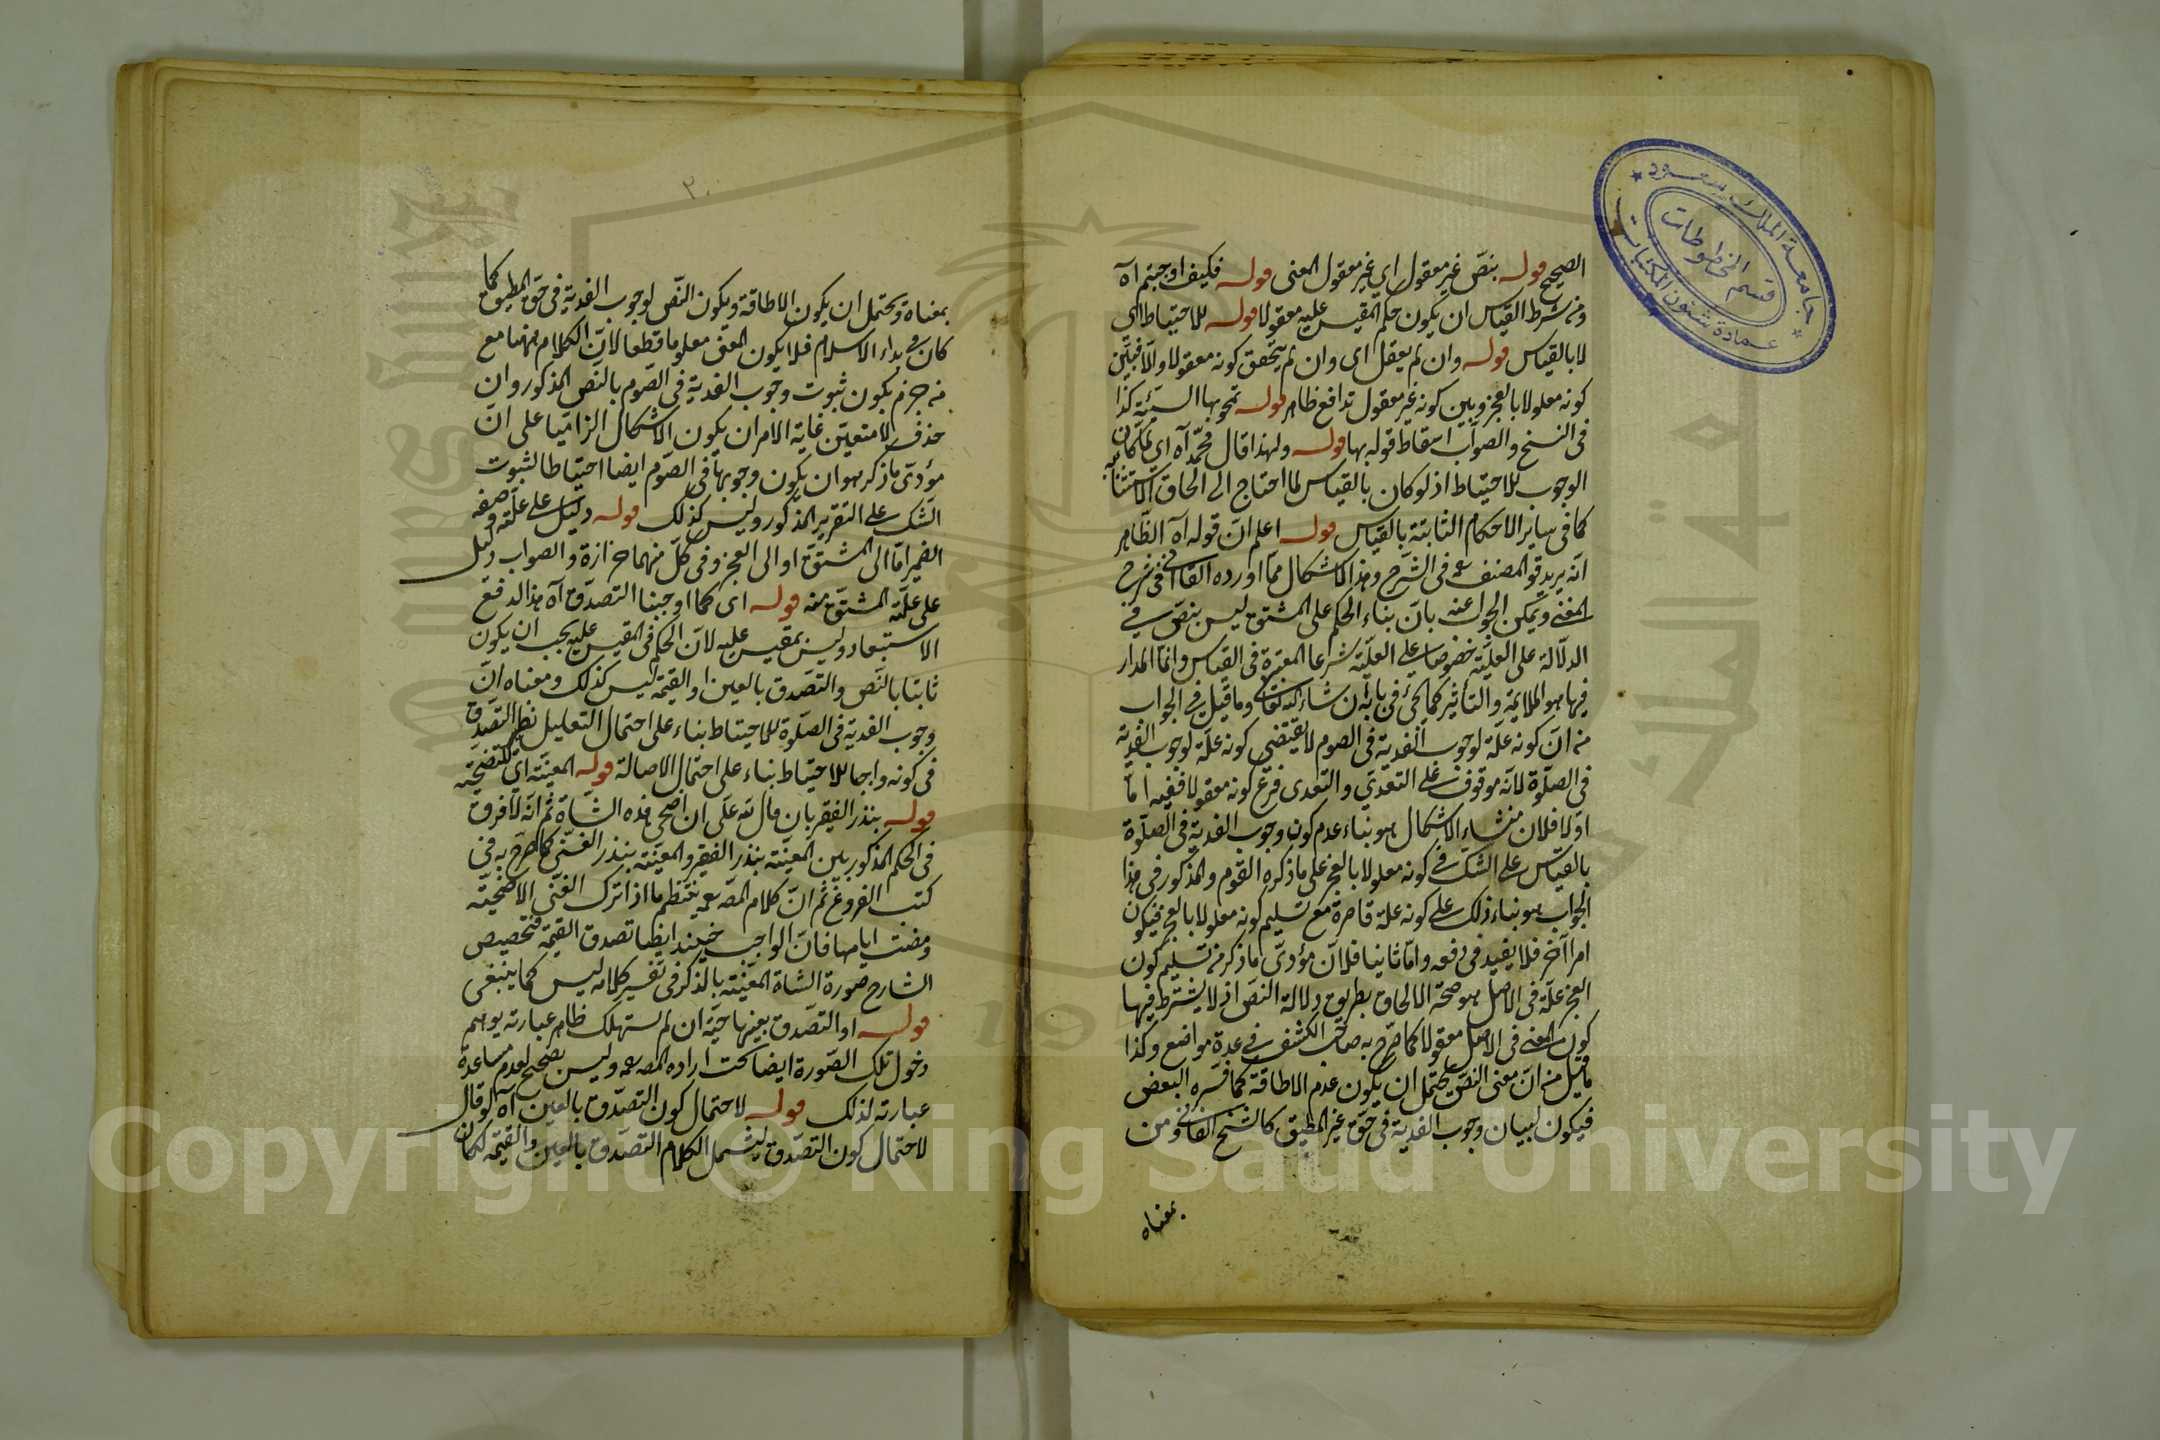 جامعة الملك سعود
قسم المخطوطات
عمادة شئون المكتبات
الصحيح قوله بنص غير معقول اى غير معقول المعنى قوله فكيف اوجبتم آه
ومن شرط القياس ان يكون حكم المقيس عليه معقولا قوله للاحتياط اى
لا بالقياس قوله وان لم يعقل اى وان لم يتحقق كونه معقولا والا فبين
كونه معلولا بالعجز وبين كونه غير معقول تدافع ظاهر قوله تمحو بها السيئة كذا
فى النسخ والصواب اسقاط قوله بها قوله ولهذا قال محمد آه اى لما كان
الوجوب للاحتياط اذ لو كان بالقياس لما احتاج الى الحاق الاستثناء به
كما فى سائر الاحكام الثابتة بالقياس قوله اعلم ان قوله آه الظاهر
انه يريد قول المصنف فى الشرح وهذا الاشكال مما اورده القاآنى فى شرح
المغنى ويمكن الجواب عنه بان بناء الحكم على المشتق ليس بنص فى
الدلالة على العلية خصوصا على العلية شرعا المعتبرة فى القياس وانما المدار
فيها هو الملايمة والتأثير كما يجئ فى بابه ان شاء الله تعالى وما قيل فى الجواب
من ان كونه علة لوجوب الفدية فى الصوم لا يقتضى كونه علة لوجوب الفدية
فى الصلوة لانه موقوف على التعدى والتعدى فرع كونه معقولا ففيه اما
اولا فلان منشاء الاشكال هو بناء عدم كون وجوب الفدية فى الصلوة
بالقياس على الشك فى كونه معلولا بالعجز على ما ذكره القوم والمذكور فى هذا
الجواب هو بناء ذلك على كونه علة قاصرة مع تسليم كونه معلولا بالعجز فيكون
امرا آخر فلا يفيد فى دفعه واما ثانيا فلان مؤدى ما ذكر من تسليم كون
العجز علة فى الاصل هو صحة الالحاق بطريق دلالة النص اذ لا يشترط فيها
كون المعنى فى الاصل معقولا كما صرح به صاحب الكشف فى عدة مواضع وكذا
ما قيل من ان معنى النص يحتمل ان يكون عدم الاطاقة كما فسره البعض
فيكون لبيان وجوب الفدية فى حق غير المطيق كالشيخ الفانى ومن
بمعناه
٢٠
بمعناه ويحتمل ان يكون الاطاقة ويكون النص لوجوب الفدية فى حق المطيق كما
كان فى بداء الاسلام فلا يكون المعنى معلوما قطعا لان الكلام ههنا مع
من جزم بكون ثبوت وجوب الفدية فى الصوم بالنص المذكور وان
حذف لا متعين غاية الامر ان يكون الاشكال الزاميا على ان
مؤدى ما ذكر هو ان يكون وجوبها فى الصوم ايضا احتياطا لثبوت
الشك على التقرير المذكور وليس كذلك قوله دليل على علته وصفه
الضمير اما الى المشتق او الى العجز وفى كل منهما حزازة والصواب دليل
على علة المشتق منه قوله اى كما اوجبنا التصدق آه هذا لدفع
الاستبعاد وليس بمقيس عليه لان الحكم فى المقيس عليه يجب ان يكون
ثابتا بالنص والتصدق بالعين او القيمة ليس كذلك ومعناه ان
وجوب الفدية فى الصلوة للاحتياط بناء على احتمال التعليل نظير التصدق
فى كونه واجبا للاحتياط بناء على احتمال الاصالة قوله المعينة اى للتضحية
قوله بنذر الفقير بان قال لله على ان اضحى هذه الشاة ثم انه لا فرق
فى الحكم المذكور بين المعينة بنذر الفقير والمعينة بنذر الغنى كما صرح به فى
كتب الفروع ثم ان كلام المص ينتظم ما اذا ترك الغنى الاضحية
ومضت ايامها فان الواجب حينئذ ايضا تصدق القيمة فتخصيص
الشارح صورة الشاة المعينة بالذكر فى تفسير كلامه ليس كما ينبغى
قوله او التصدق بعينها حية ان لم يستهلك ظاهر عبارته يوهم
دخول تلك الصورة ايضا تحت ارادة المص وليس بصحيح لعدم مساعدة
عبارته لذلك قوله لاحتمال كون التصدق بالعين آه لو قال
لاحتمال كون التصدق ليشمل الكلام التصدق بالعين والقيمة لكان
Copyright © King Saud University